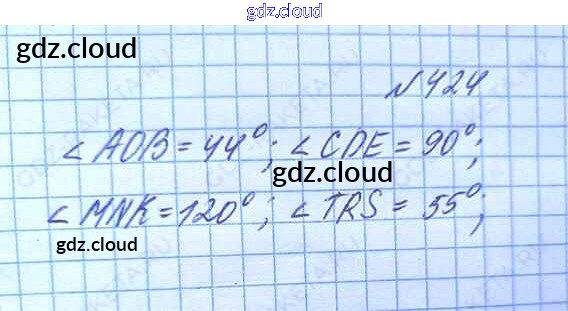 gdz.cloud
gdz.cloud
№424
∠AOB = 44°; ∠CDE = 90°;
gdz.cloud
∠MNK = 120°; ∠TRS = 55°;
gdz.cloud